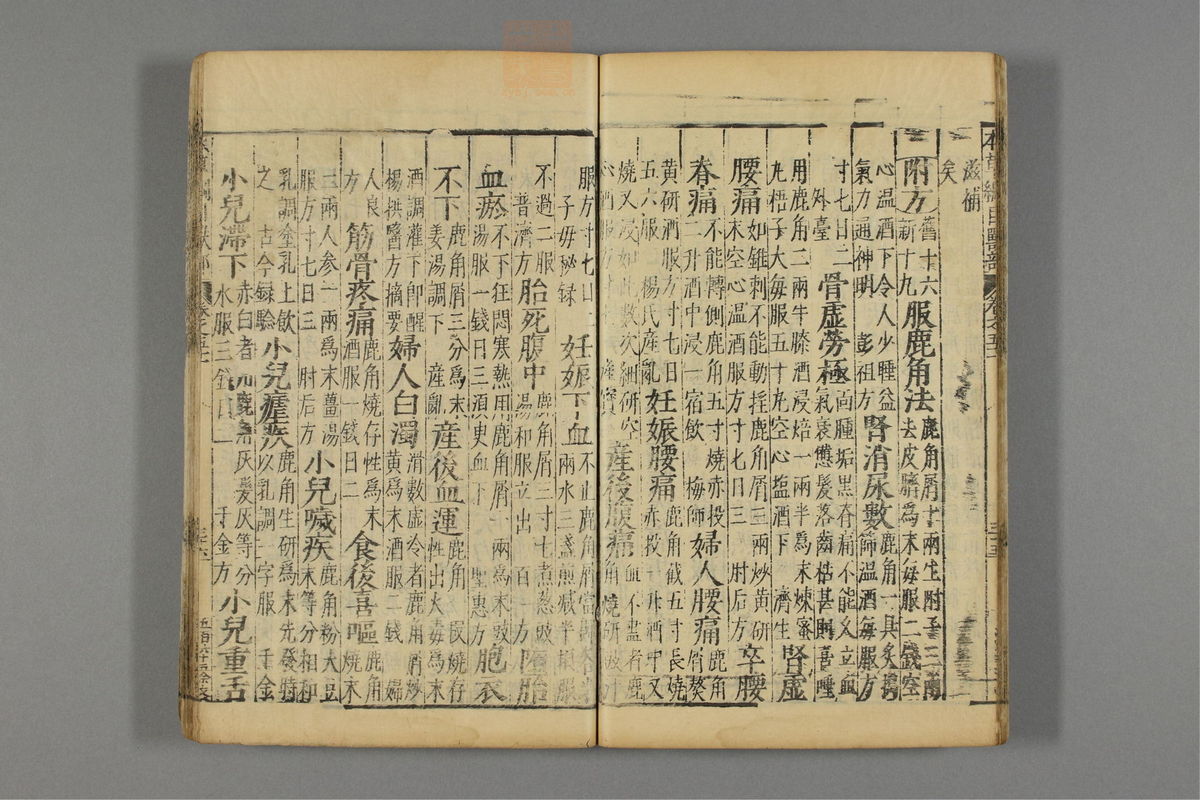 本草綱目獸部
滋補
矣
附方 舊十六
新十九 服鹿角法 鹿角屑十兩生附子三兩
去皮臍為末每服二錢空
心温酒下令人少睡益
氣力通神明 彭祖方 腎消尿數 鹿角一具炙搗
篩温酒每服方
寸七日二
外臺 骨虛勞極 面腫垢黑脊痛不能久立血
氣衰憊髮落齒枯甚則喜唾
用鹿角二兩牛膝酒浸焙一兩半為末煉蜜
丸梧子大每服五十九空心塩酒下 濟生 腎虛
腰痛 如錐刺不能動摇鹿角屑三兩炒黄研
末空心温酒服方寸七日三 肘后方 卒腰
脊痛 不能轉側鹿角五寸燒赤投
二升酒中浸一宿飲 梅師 婦人腰痛 鹿角屑熬
黄研酒服方寸七日
五六服 楊氏産亂 妊娠腰痛 鹿角截五寸長燒
赤投一升酒中又
燒又浸如此數次細研空
心酒服方寸七 産寶 産後腹痛 血不盡者鹿
角燒研豉汁
服方寸七日
子母秘録 妊娠下血 不止鹿角屑當歸各半
兩水三盞煎減半頓服
不過二服
普濟方 胎死腹中 鹿角屑三寸七煮葱豉
湯和服立出 百一方 墮胎
血瘀 不下狂悶寒熱用鹿角屑一兩為末豉
湯服一錢日三須臾血下 聖惠方 胞衣
不下 鹿角屑三分為末
姜湯調下 産亂 産後血運 鹿角一段燒存
性出火毒為末
酒調灌下即醒
楊拱醫方摘要 婦人白濁 滑數虛冷者鹿角屑炒
黄為末酒服二錢 婦
人良
方 筋骨疼痛 鹿角燒存性為末
酒服一錢日二 食後喜嘔 鹿角
燒末
二兩人參一兩為末薑湯
服方寸七日三 肘后方 小兒噦疾 鹿角粉大豆
末等分相和
乳調塗乳上飲
之 古今録驗 小兒瘧疾 鹿角生研為末先發時
以乳調一字服 千金
小兒滯下 赤白者用鹿角灰髮灰等分
水服三錢日二 千金方 小兒重舌